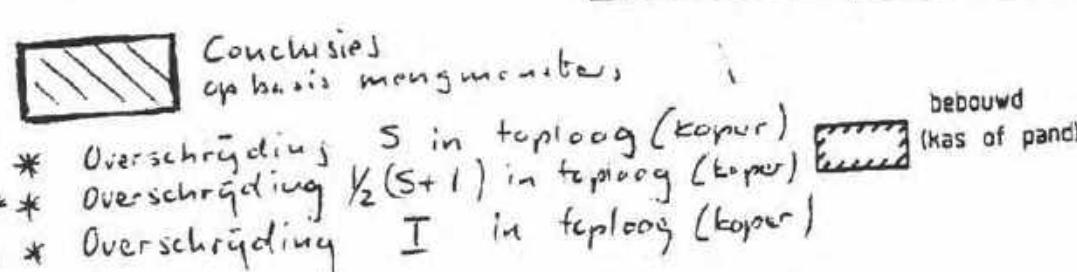 Conclusies
op basis mengmonsters
* Overschrijding S in toplaag (koper)
** Overschrijding 1/2 (S+I) in toplaag (koper)
* Overschrijding I in toplaag (koper)
bebouwd
(kas of pand)